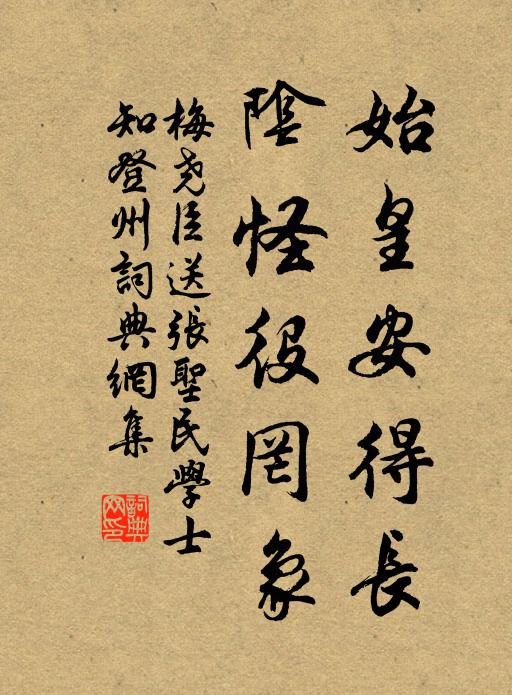 始皇安得長
陰怪役罔象
梅堯臣送張聖民學士
知登州詞典網集
詞典網印